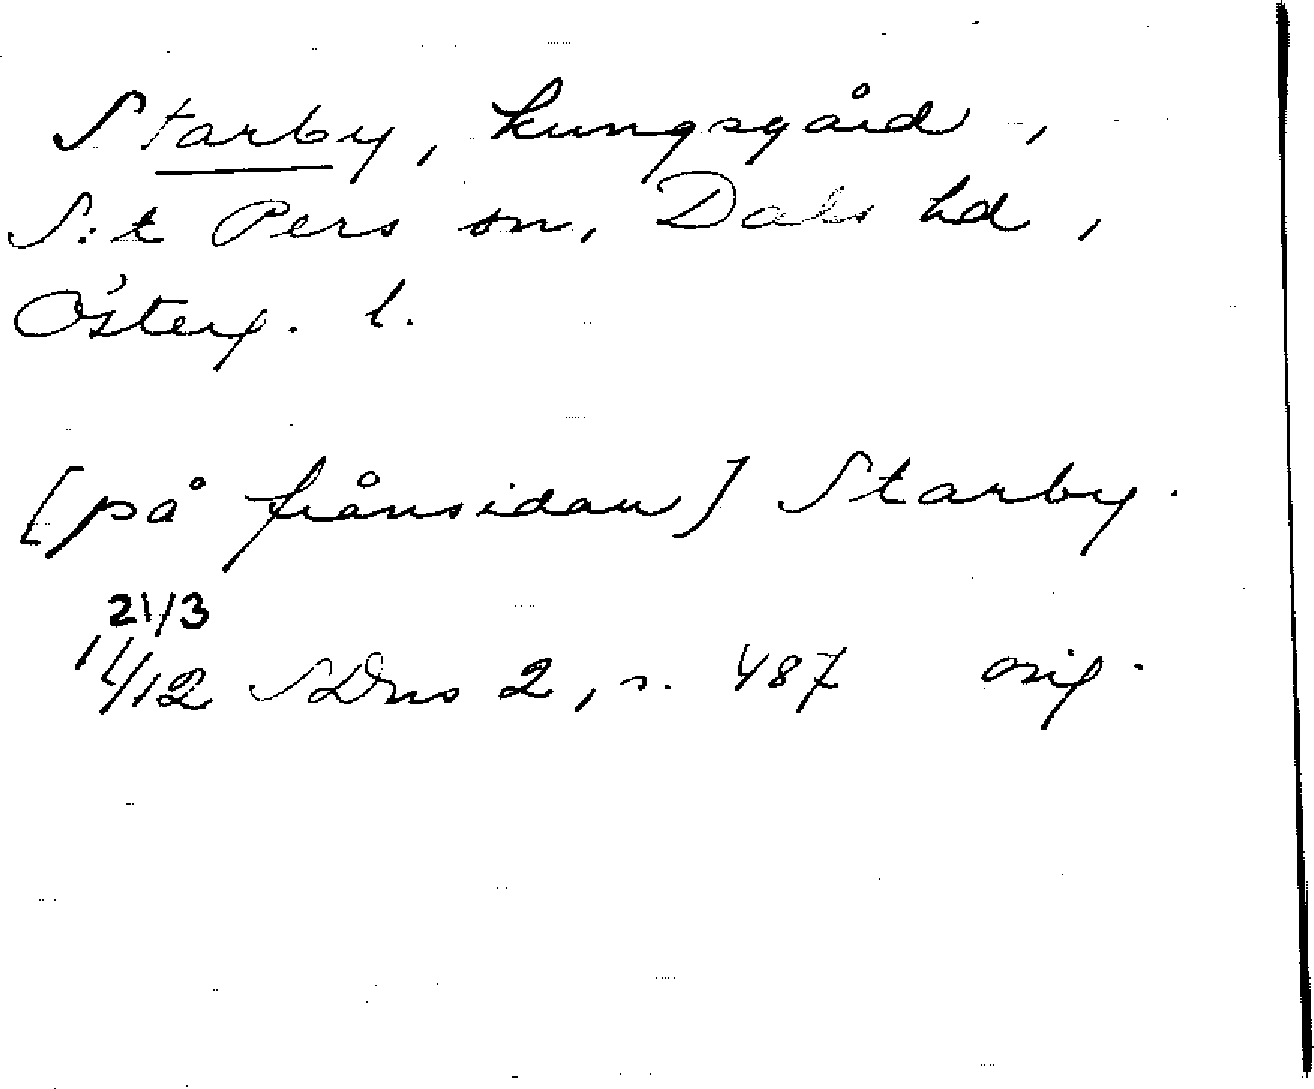 Starby, kungsgård,
S:t Pers sn, Dals hd,
Österg. l.
[på frånsidan] Starby.
21/3
11/12 SDns 2, s. 487 orig.